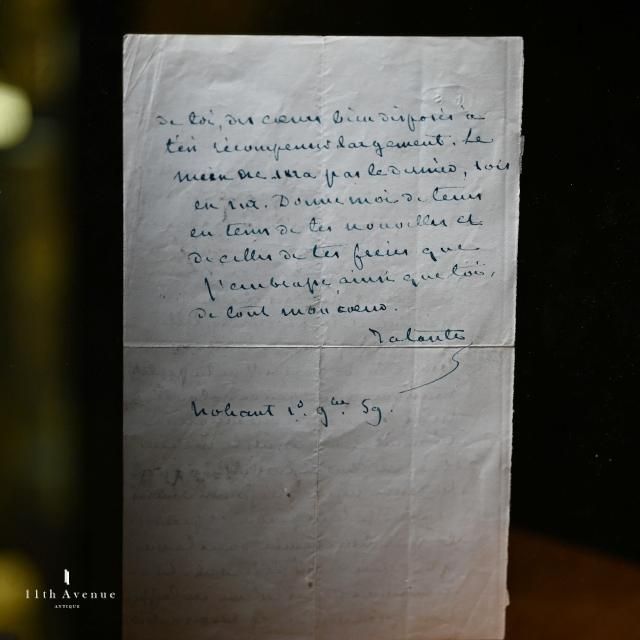 de toi, des cœurs bien disposés à
t'en récompenser largement. Le
mien ne sera pas le dernier, sois
en sûr. Donne moi de tems
en tems de tes nouvelles et
de celles de tes frères que
j'embrasse, ainsi que toi,
de tout mon cœur.
Ta tante
Nohant 1º 9bre 59.
11th Avenue
ANTIQUE